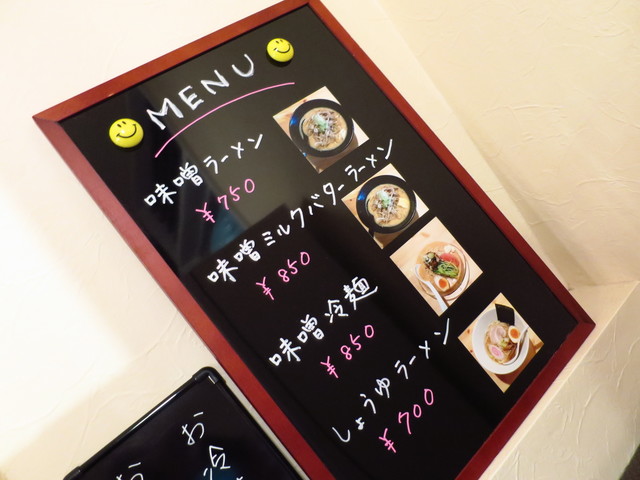 MENU
味噌ラーメン
¥750
味噌ミルクバターラーメン
¥850
味噌冷麺
¥850
しょうゆラーメン
¥700
お冷
お